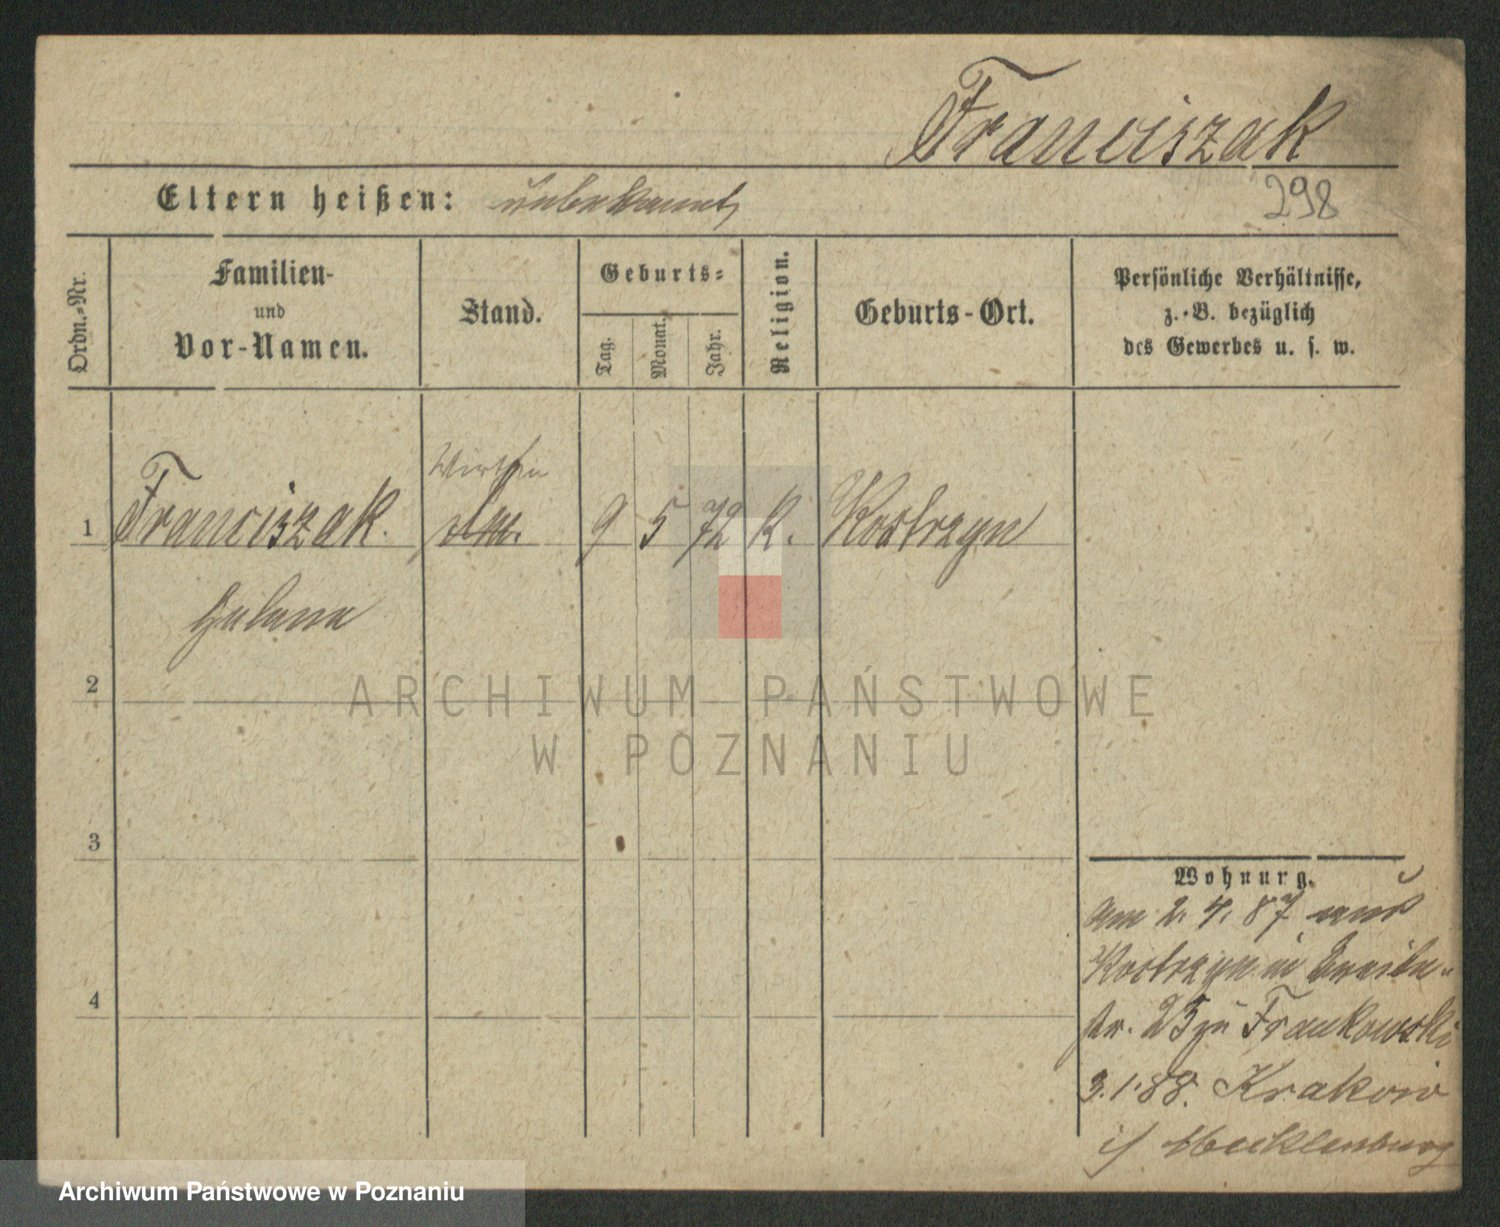 Franciszak
Eltern heißen: unbekannt
298
Ordn.-Nr.
Familien-
und
Vor-Namen.
Stand.
Geburts-
Tag.
Monat.
Jahr.
Religion.
Geburts-Ort.
Persönliche Verhältnisse,
z.-B. bezüglich
des Gewerbes u. s. w.
1 Franciszak. 9 5 72 K. Kostrzyn
Helena
2
3
4
Wohnung.
am 2. 4. 87 aus
Kostrzyn in Breite-
str. 25 zu Frankowski
3.1.88. Krakow
i/ Mecklenburg
ARCHIWUM PAŃSTWOWE
W POZNANIU
Archiwum Państwowe w Poznaniu